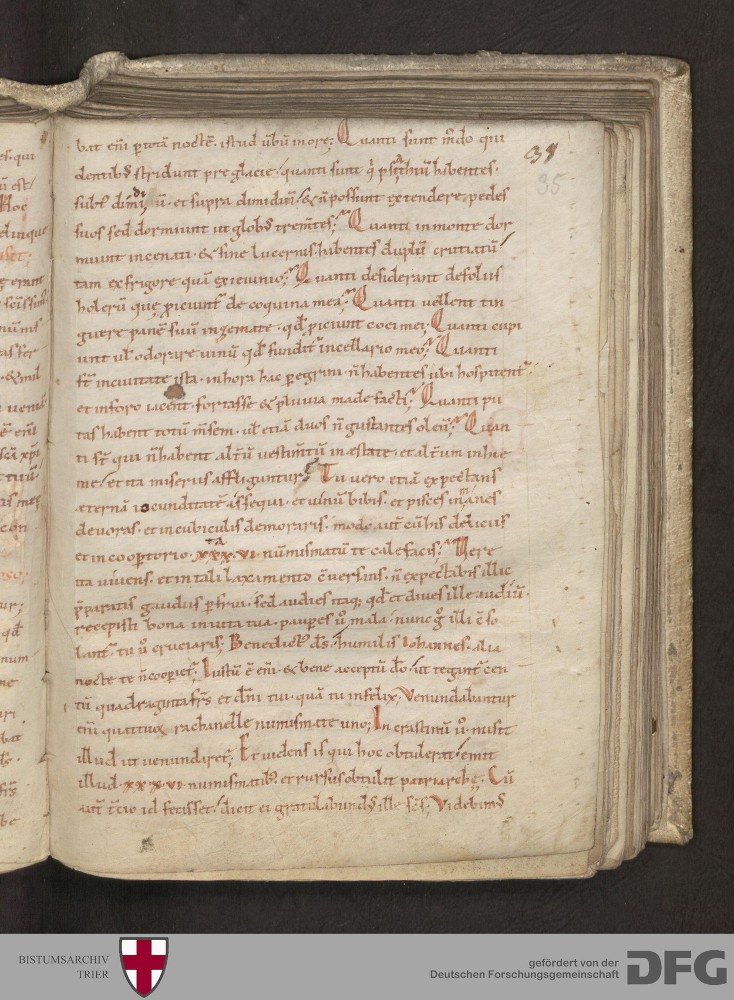 bat eni p totā noctē. istud ūbū in ore; Quanti sunt m̄do qui
dentib; stridunt pre glacie. quanti sunt q̓ psiathiū habentes.
subt͛ dimidiū. et supra dimidiū. & n̄ possunt extendere pedes
suos sed dormiunt ut glob; trem̄tes; Quanti in monte dor
miunt incenati. & sine lucernis habentes duplū cruciatū
tam ex frigore quā ex ieiunio; Quanti desiderant de foliis
holerū que ꝓiciunt͛ de coquina mea; Quanti vellent tin
guere panē suū in zemate. qđ ꝓiciunt coci mei; Quanti cupi
unt ul̓ odorare uinū qđ fundit͛ in cellario meo; Quanti
st̄ in ciuitate ista. in hora hac peregrini. n̄ habentes ubi hospitent͛
et in foro iacent. fortasse & pluuia madefacti; Quanti pu
tas habent totū m̄sem. ul̓ etiā duos n̄ gustantes oleū; Quan
ti st̄ qui n̄ habent alt̄ū uestim̄tū in estate. et alt̄um in hie
me. et ita miserius affliguntur; Tu uero etiā expectans
æternā iocunditatē assequi. et uinū bibis. et pisces inmanes
deuoras. et in cubiculis demoraris. modo aut̄ cū his deliciis
et in coopertorio. xxx.vi. numismatū te calefacis; Vere
ita uiuens. et in tali laxamento c̄uersans. n̄ expectabis illic
p̄paratis gaudiis ꝑfrui. sed audies itaq; qđ et diues ille audiū.
recepisti bona in uita tua. paupes u̓ mala. nunc g̊ illi c̄so
lant͛. tu u̓ cruciaris; Benedict; d̄s. humilis Iohannes. alia
nocte te n̄ cooperiet; Iustū ē eni. & bene acceptū d̄o. ut tegant͛ cen
tū quadraginta fr̄s et dn̄i tui. quā tu infelix; Venundabantur
eni quattuor rachanelle numismate uno; In crastinū u̓ misit
illud ut uenundiret͛. Et uidens is qui hoc obtulerat. emit
illud. xxx.vi. numismatib;. et rursus obtulit patriarche; Cū
aut̄ t̄cio id fecisset. dicit ei gratulabund; ille sc̄s; Videbim;
31
35
BISTUMSARCHIV
TRIER
gefördert von der
Deutschen Forschungsgemeinschaft
DFG